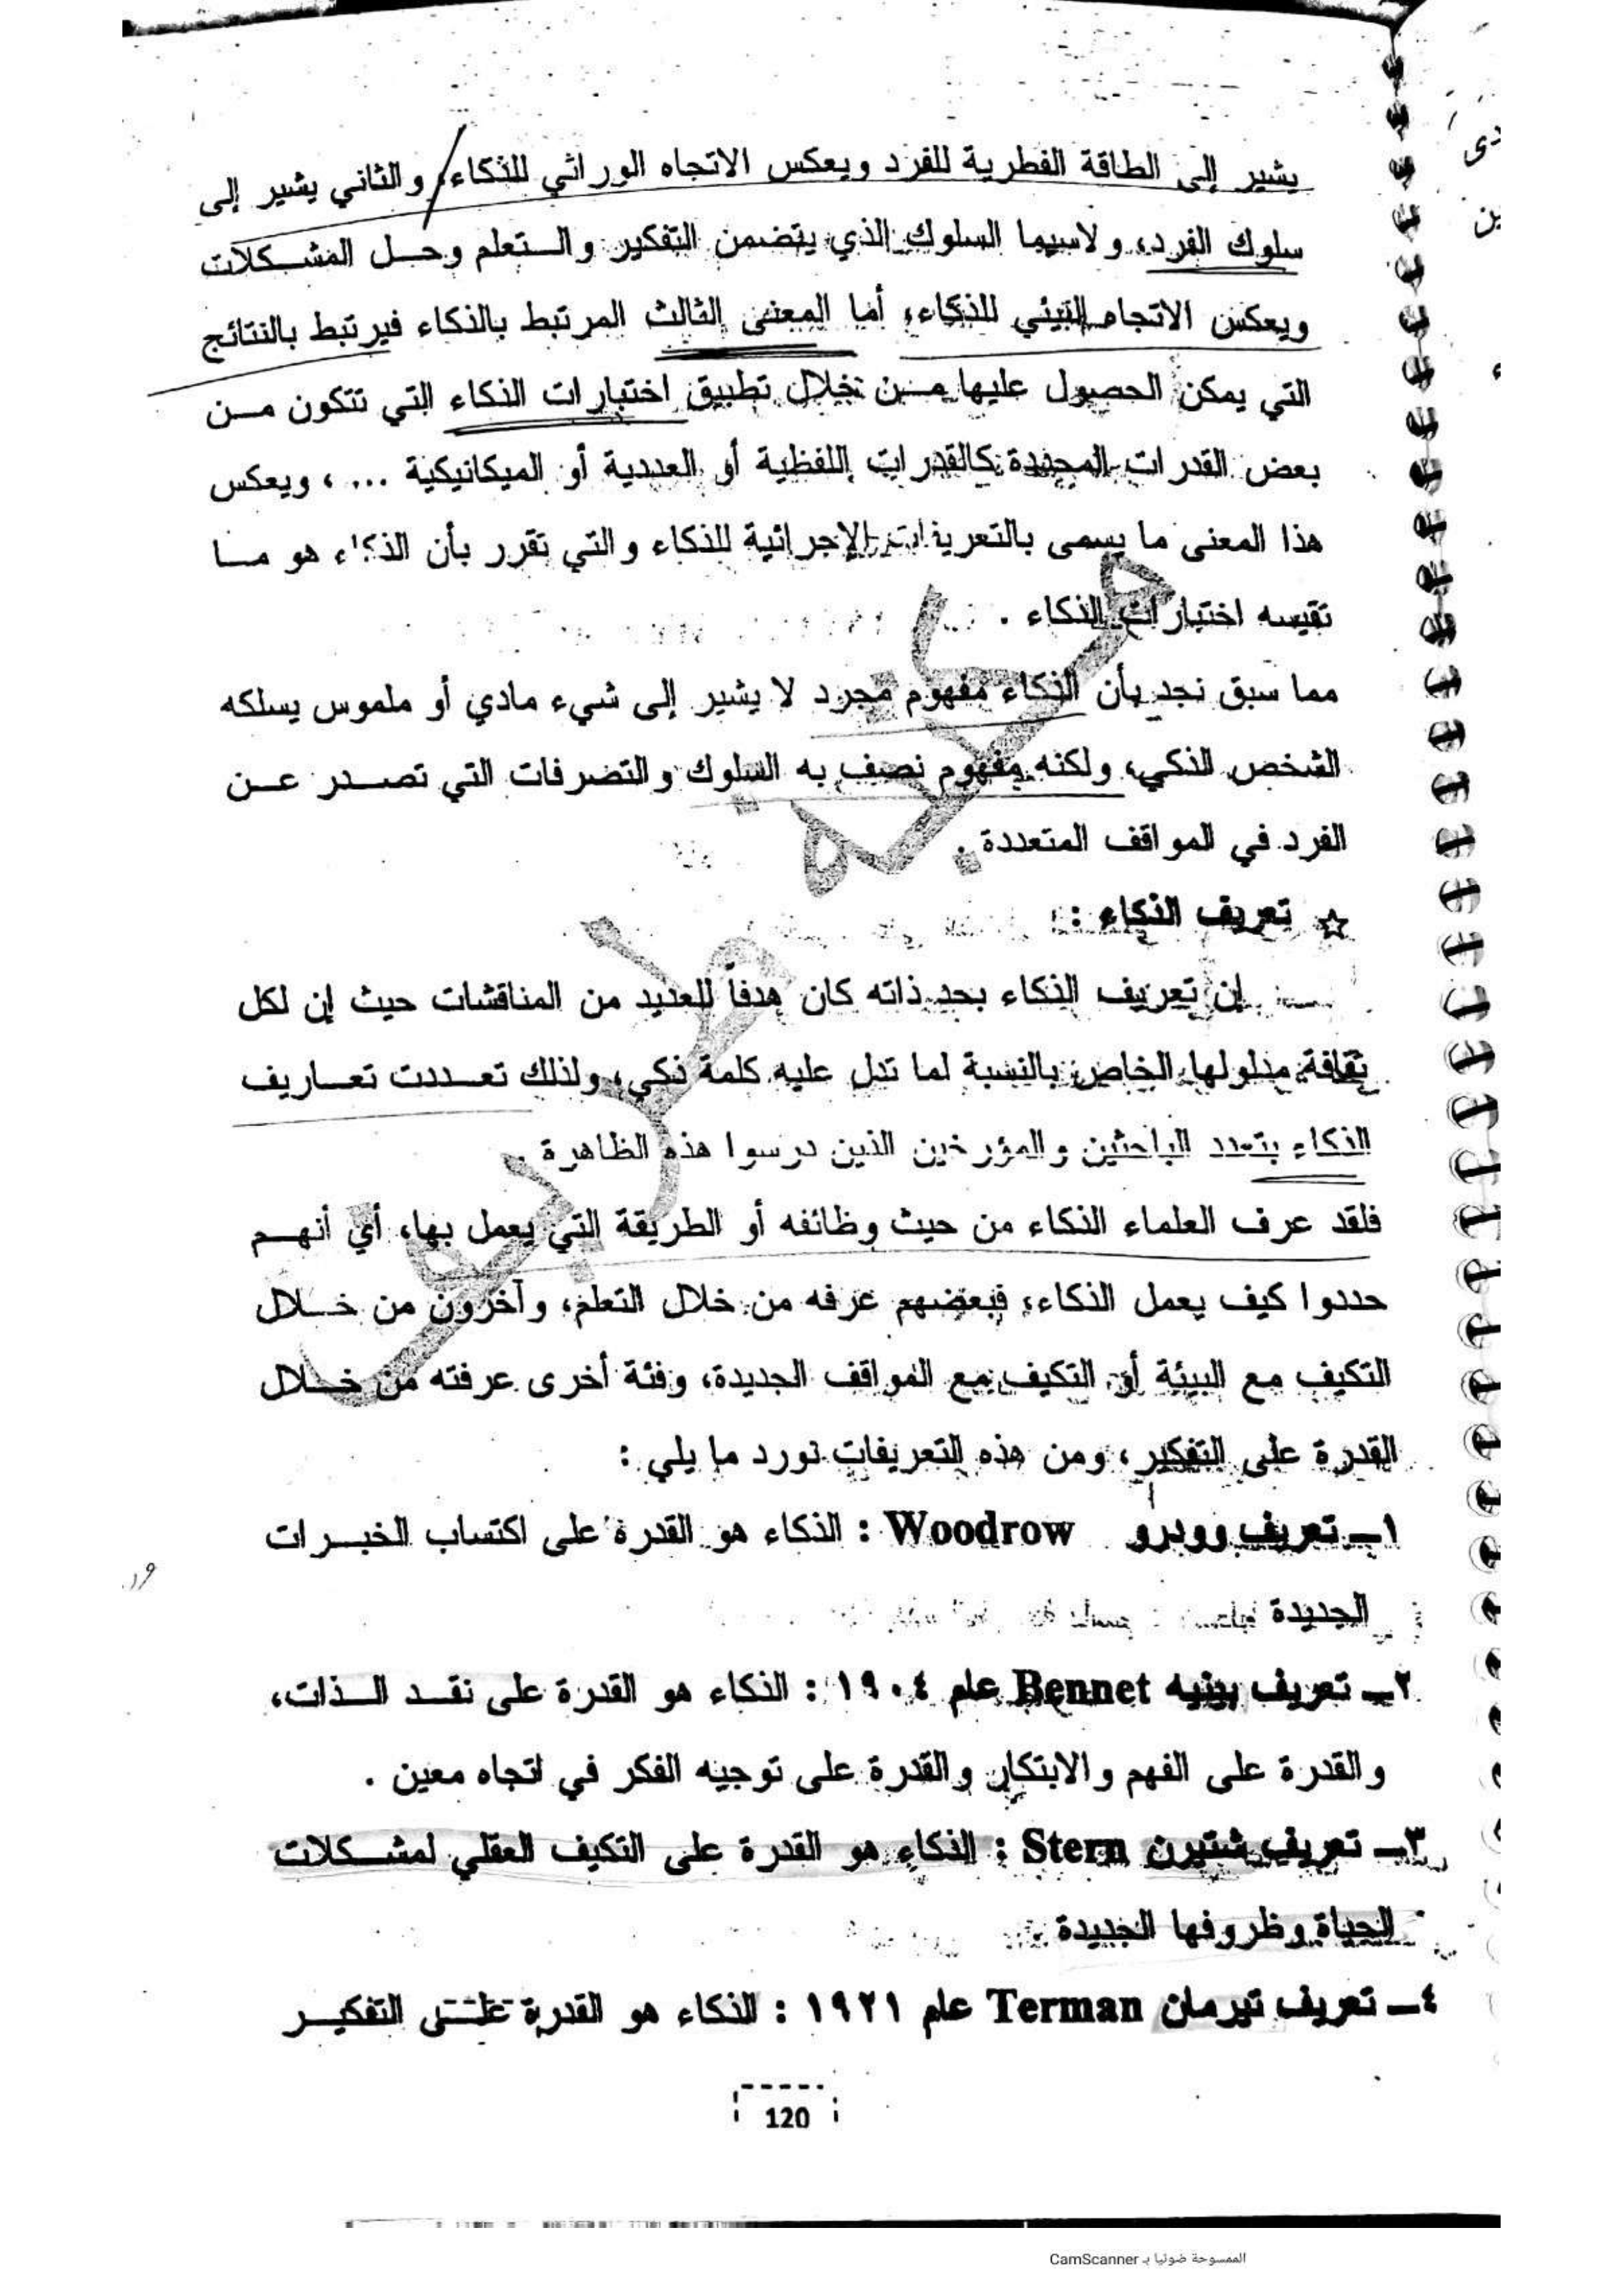 يشير إلى الطاقة الفطرية للفرد ويعكس الاتجاه الوراثي للذكاء، والثاني يشير إلى
سلوك الفرد، ولاسيما السلوك الذي يتضمن التفكير والتعلم وحل المشكلات
ويعكس الاتجاه البيئي للذكاء، أما المعنى الثالث المرتبط بالذكاء فيرتبط بالنتائج
التي يمكن الحصول عليها من خلال تطبيق اختبارات الذكاء التي تتكون من
بعض القدرات المحددة كالقدرات اللفظية أو العددية أو الميكانيكية ... ، ويعكس
هذا المعنى ما يسمى بالتعريفات الإجرائية للذكاء والتي تقرر بأن الذكاء هو ما
تقيسه اختبارات الذكاء .
مما سبق نجد بأن الذكاء مفهوم مجرد لا يشير إلى شيء مادي أو ملموس يسلكه
الشخص الذكي، ولكنه مفهوم نصف به السلوك والتصرفات التي تصدر عن
الفرد في المواقف المتعددة .
☆ تعريف الذكاء :
إن تعريف الذكاء بحد ذاته كان هدفاً للعديد من المناقشات حيث إن لكل
ثقافة مدلولها الخاص بالنسبة لما تدل عليه كلمة ذكي، ولذلك تعددت تعاريف
الذكاء بتعدد الباحثين والمؤرخين الذين درسوا هذه الظاهرة .
فلقد عرف العلماء الذكاء من حيث وظائفه أو الطريقة التي يعمل بها، أي أنهم
حددوا كيف يعمل الذكاء، فبعضهم عرفه من خلال التعلم، وآخرون من خلال
التكيف مع البيئة أو التكيف مع المواقف الجديدة، وفئة أخرى عرفته من خلال
القدرة على التفكير، ومن هذه التعريفات نورد ما يلي :
١ـ تعريف وودرو Woodrow : الذكاء هو القدرة على اكتساب الخبرات
الجديدة
٢ـ تعريف بينيه Bennet عام ١٩٠٤ : الذكاء هو القدرة على نقد الذات،
والقدرة على الفهم والابتكار والقدرة على توجيه الفكر في اتجاه معين .
٣ـ تعريف شتيرن Stern : الذكاء هو القدرة على التكيف العقلي لمشكلات
الحياة وظروفها الجديدة .
٤ـ تعريف تيرمان Terman عام ١٩٢١ : الذكاء هو القدرة على التفكير
120
الممسوحة ضوئيا بـ CamScanner